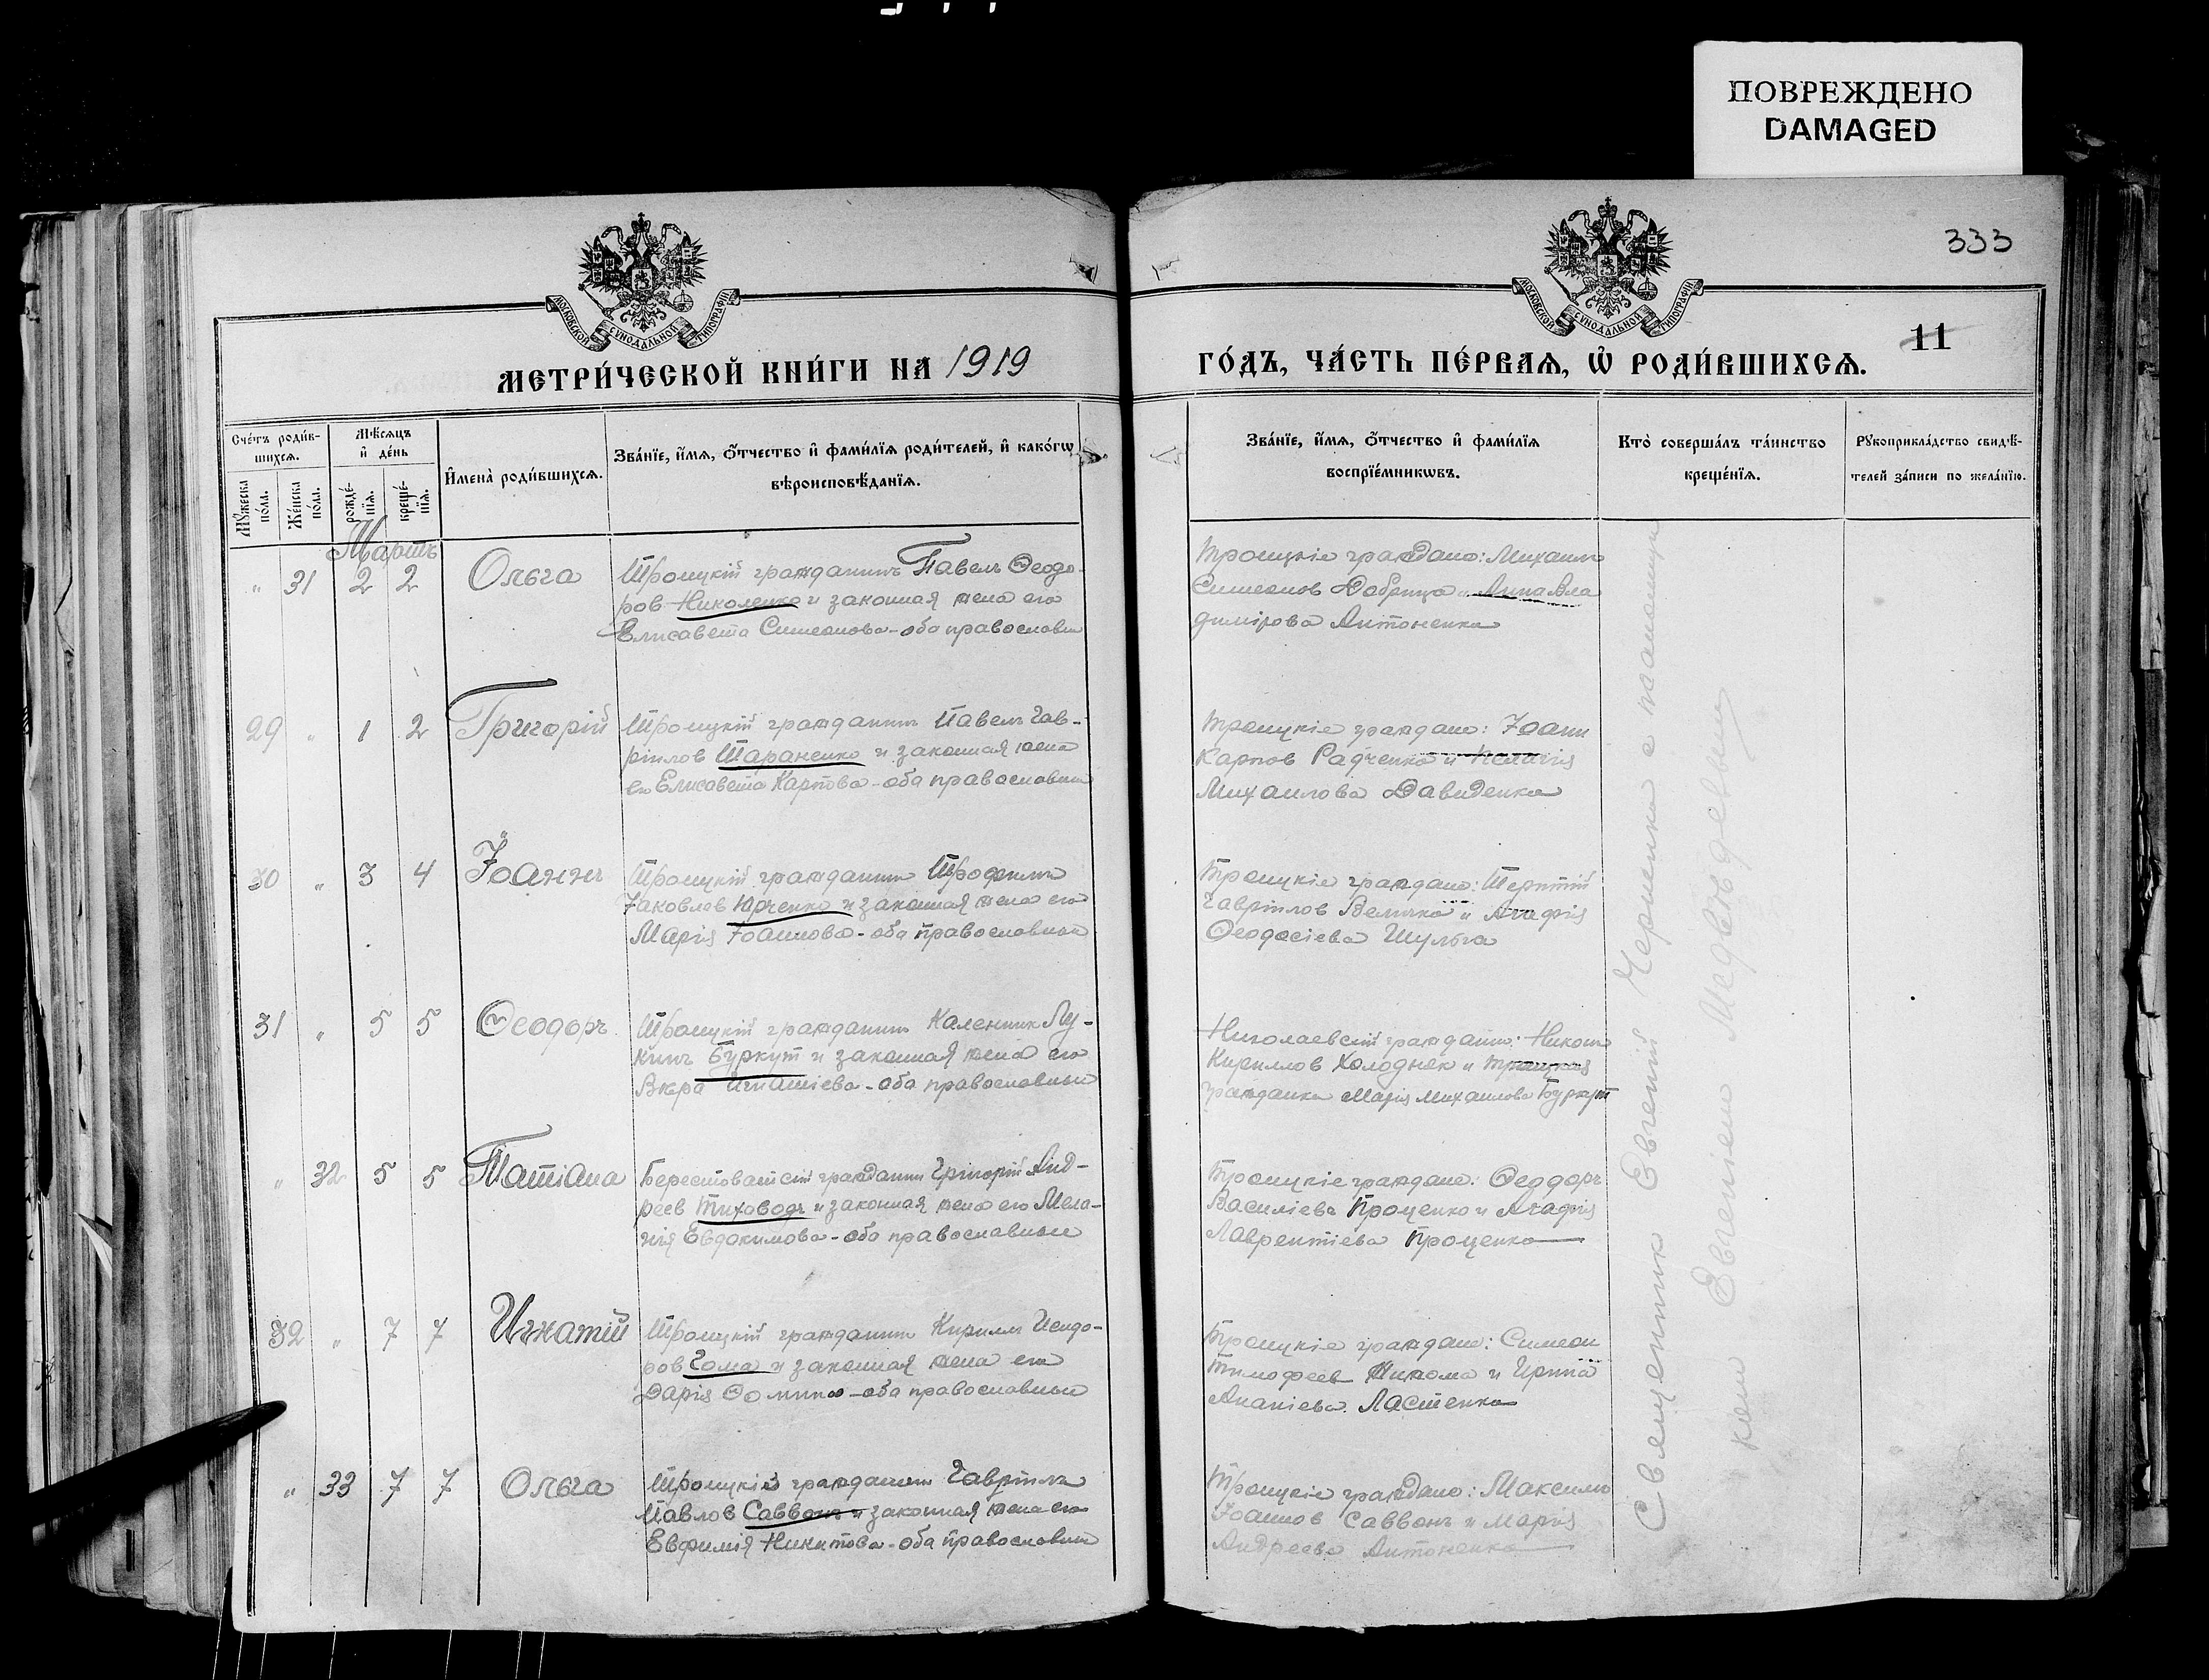 ПОВРЕЖДЕНО
DAMAGED
333
11
МОСКОВСКОЙ СУНОДАЛЬНОЙ ТИПОГРАФІИ
МОСКОВСКОЙ СУНОДАЛЬНОЙ ТИПОГРАФІИ
МЕТРИ́ЧЕСКОЙ КНИ́ГИ НА 1919
ГО́ДЪ, ЧА́СТЬ ПЕ́РВАѦ, Ѡ҆ РОДИ́ВШИХСѦ.
Сче́тъ роди́в-
шихсѧ.
Мѣ́сѧцъ
и҆ де́нь
Мꙋ́жеска
по́ла.
Же́нска
по́ла.
рожде́-
нїѧ.
креще́-
нїѧ.
И҆мена̀ роди́вшихсѧ.
Зва́нїе, и҆́мѧ, ѻ҆́тчество и҆ фами́лїѧ роди́телей, и҆ како́гѡ
вѣроисповѣ́данїѧ.
Зва́нїе, и҆́мѧ, ѻ҆́тчество и҆ фами́лїѧ
воспрїе́мникѡвъ.
Кто̀ соверша́лъ та́инство
креще́нїѧ.
Рꙋкоприкла́дство свидѣ́-
телей за́писи по жела́нїю.
Мартъ
" 31 2 2 Ольга
Троицкій гражданинъ Павелъ Ѳеодо-
ров Николенко и законная жена его
Елисавета Симеонова - оба православны
Троицкіе граждане: Михаил
Симеонов Добрица и Анна Вла
димірова Антоненко
29 " 1 2 Григорій
Троицкій гражданин Павелъ Гав-
ріилов Тараненко и законная жена
его Елисавета Карпова - оба православны
Троицкіе граждане: Іоанн
Карпов Радченко и Пелагія
Михаилова Давиденко
30 " 3 4 Іоаннъ
Троицкій гражданин Трофимъ
Іаковлев Юрченко и законная жена его
Марія Іоаннова - оба православные
Троицкіе граждане: Терентій
Гавріилов Величко и Агафія
Ѳеодосіева Шульга
31 " 5 5 Ѳеодоръ
Троицкій гражданин Каленник Лу-
кинъ Буркут и законная жена его
Вѣра Игнатіева - оба православные
Николаевскій гражданин: Никон
Кириллов Холодняк и Троицкая
гражданка Марія Михаилова Буркут
" 32 5 5 Татіана
гражданин Григорій Анд-
реев Тиховодъ и законная жена его Мела-
нія Евдокимова - оба православные
Троицкіе граждане: Ѳеодоръ
Василіевъ Проценко и Агафія
Лаврентіева Проценко
32 " 7 7 Игнатій
Троицкій гражданин Кирилл Исидо-
ров Гома и законная жена его
Дарія Ѳомина - оба православные
Троицкіе граждане: Симеон
Тимофеев и Ирина
Ананіева Ластенко
" 33 7 7 Ольга
Троицкій гражданин Гавріилъ
Павлов Саввонъ и законная жена его
Евфимія Никитова - оба православны
Троицкіе граждане: Максимъ
Іоаннов Саввонъ и Марія
Андреева Антоненко
Священник Евгеній Черненко с псаломщи
ком Евгеніем Медвѣдевым